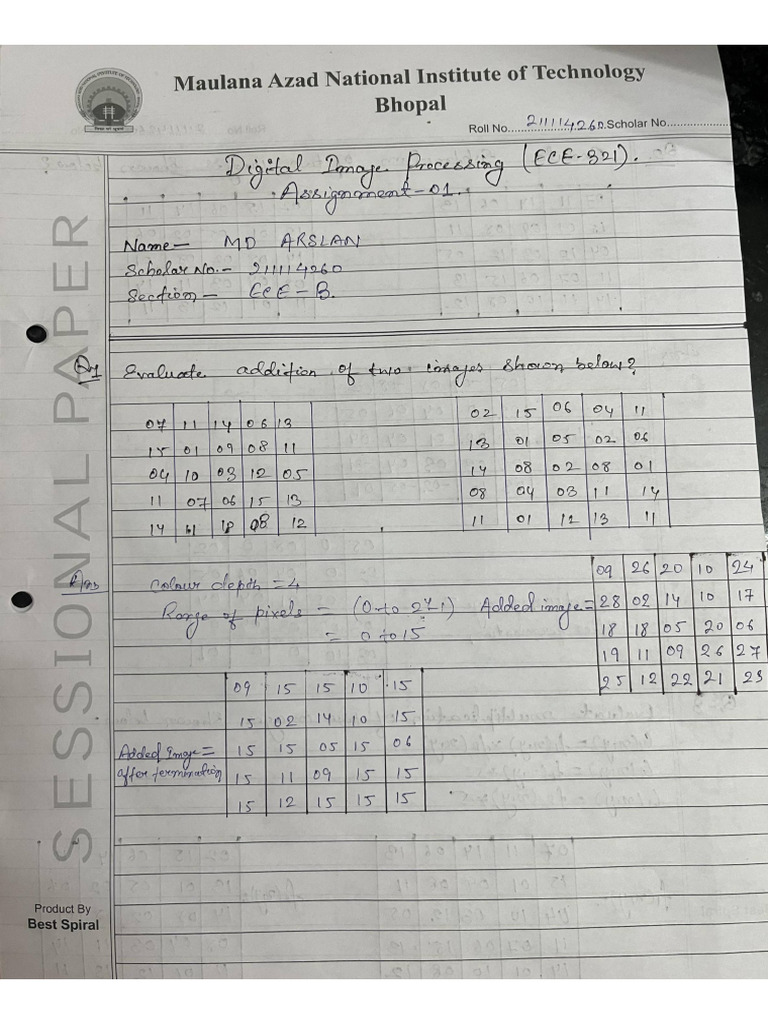 Maulana Azad National Institute of Technology
Bhopal
Roll No. 211114260. Scholar No.
Digital Image Processing (ECE-321).
Assignment-01.
Name- MD ARSLAN
Scholar No.- 211114260
Section- ECE-B.
Q1 Evaluate addition of two images shown below?
07 11 14 06 13
15 01 09 08 11
04 10 03 12 05
11 07 06 15 13
14 11 10 08 12
02 15 06 04 11
13 01 05 02 06
14 08 02 08 01
08 04 03 11 14
11 01 12 13 11
Ans Colour depth = 4
Range of pixels = (0 to 2^4-1)
= 0 to 15
Added image =
09 26 20 10 24
28 02 14 10 17
18 18 05 20 06
19 11 09 26 27
25 12 22 21 23
Added Image =
after termination
09 15 15 10 15
15 02 14 10 15
15 15 05 15 06
15 11 09 15 15
15 12 15 15 15
SESSIONAL PAPER
Product By
Best Spiral